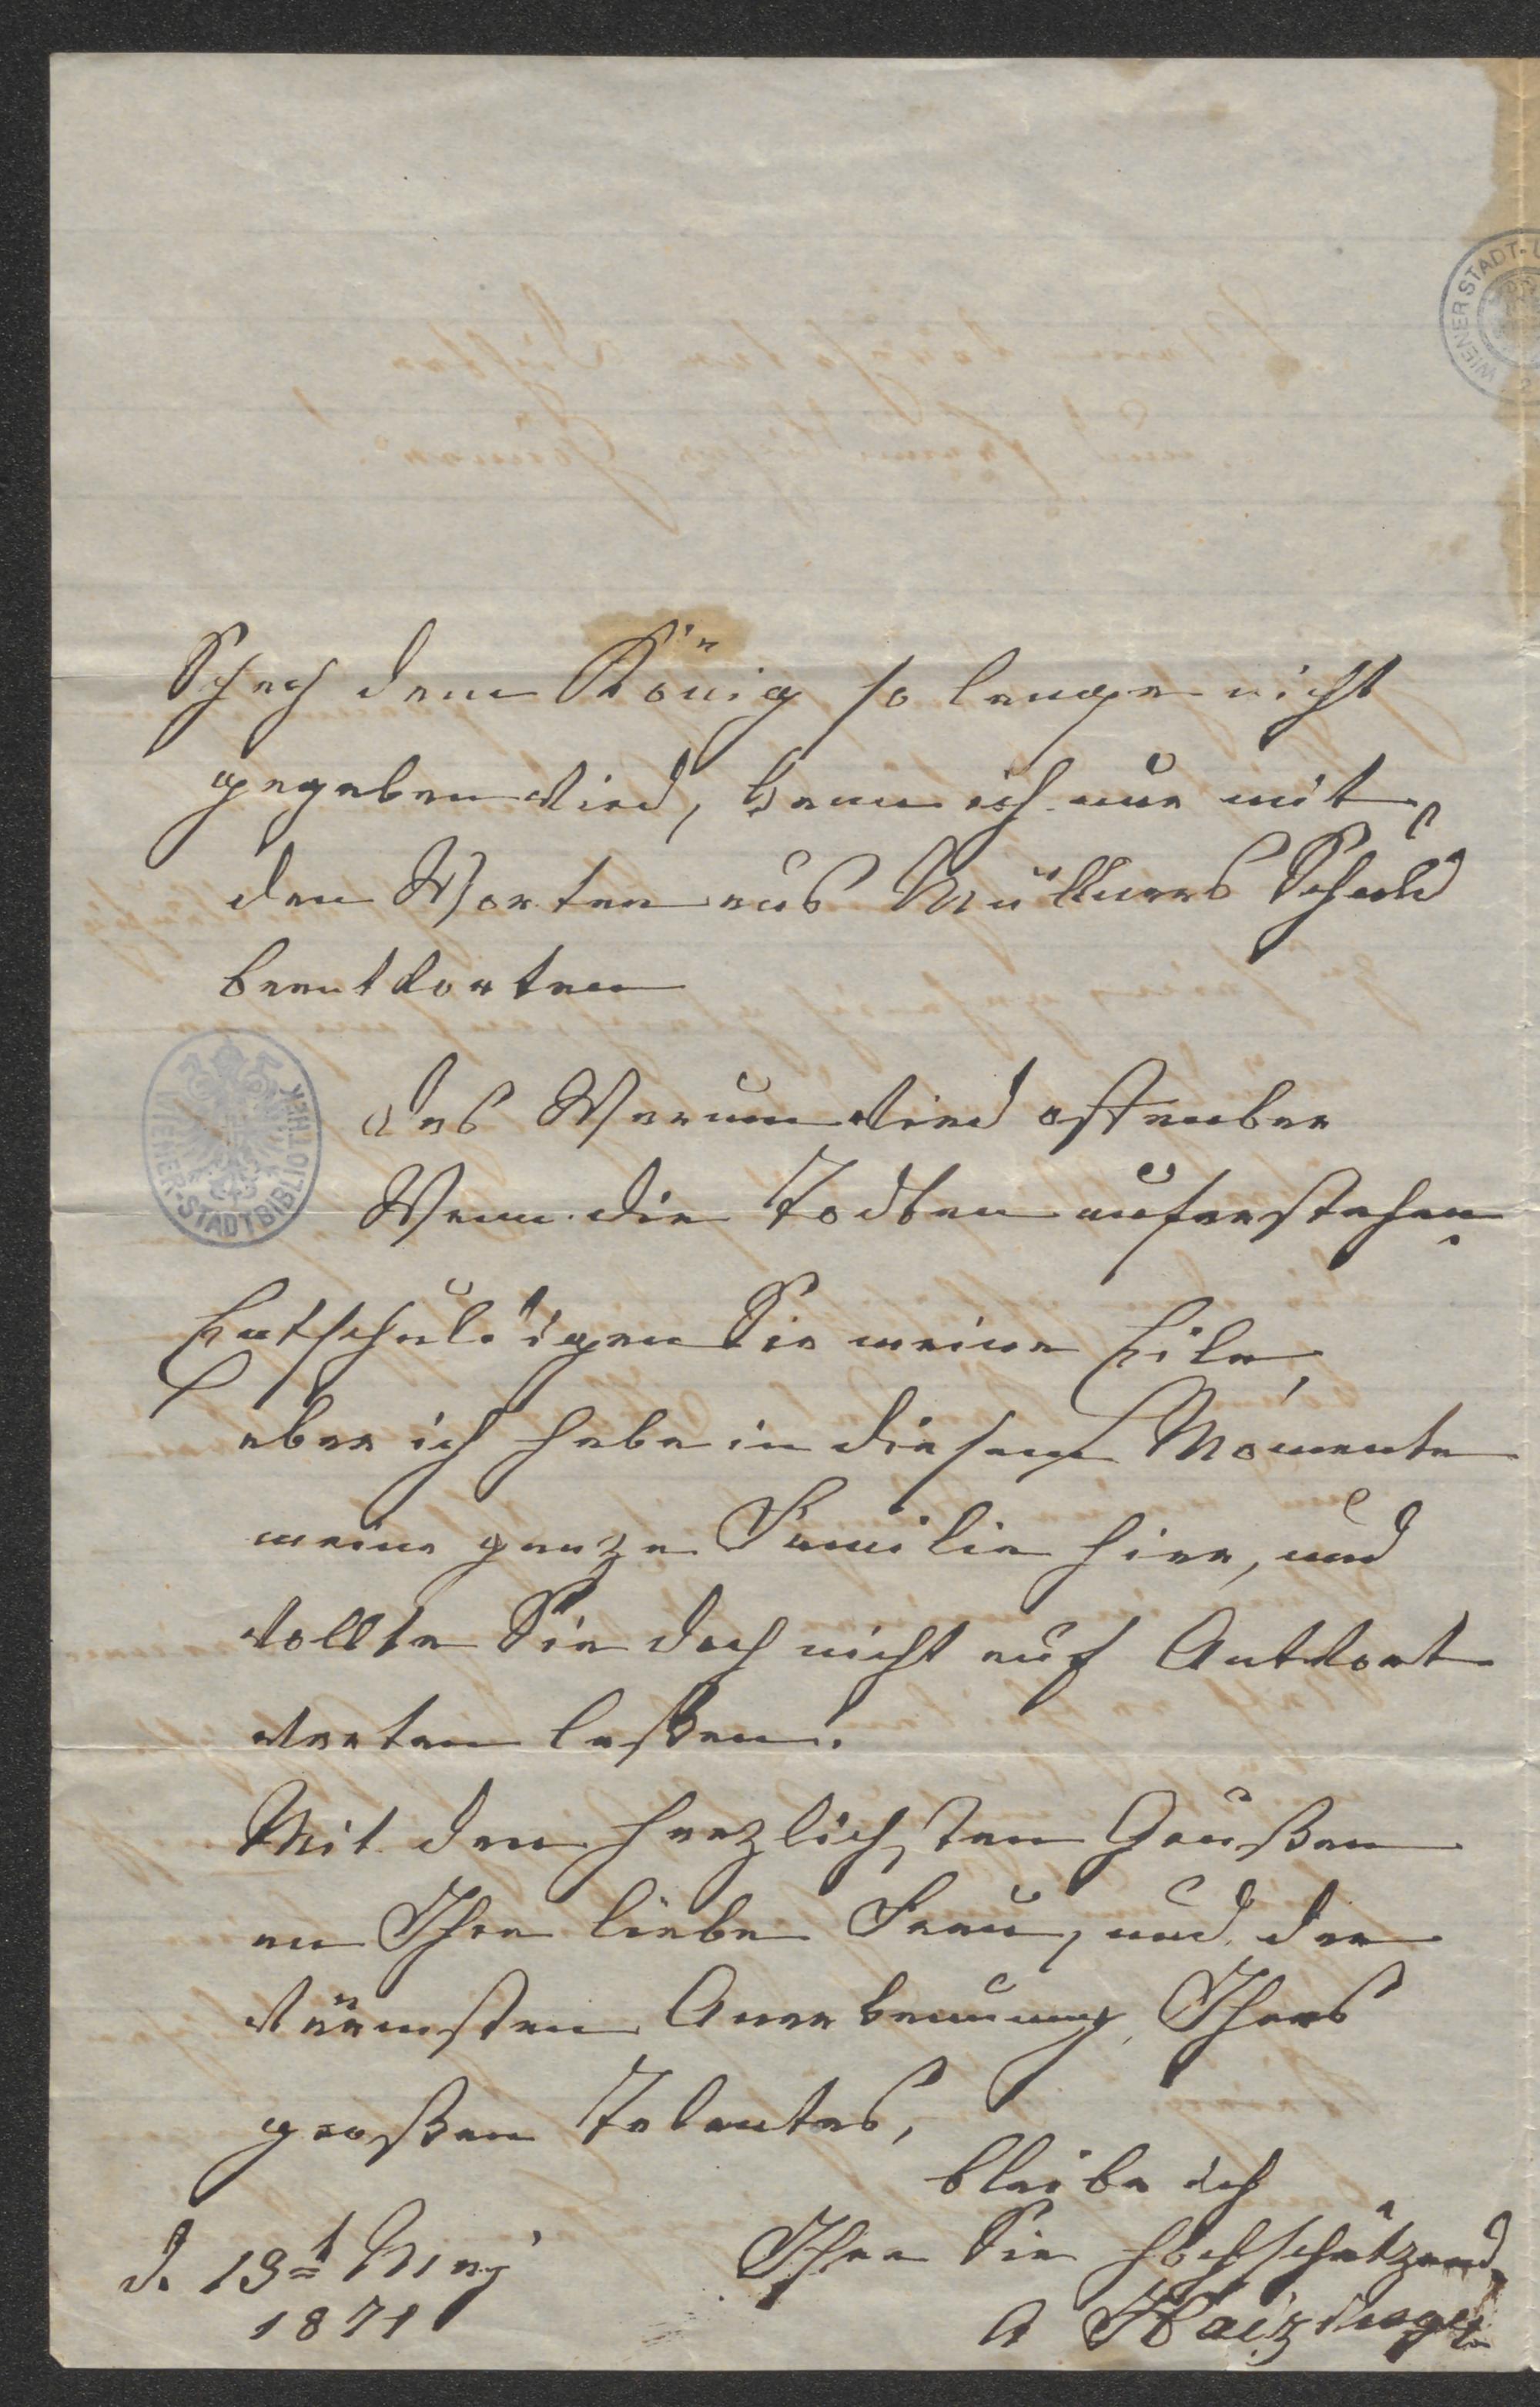 Schach dem König so lange nicht
gegeben wird, kann ich nur mit
den Worten aus Müllners Schuld
beantworten
Das Warum wird offenbar
Wenn die Todten auferstehen.
Entschuldigen Sie meine Eile,
aber ich habe in diesem Momente
meine ganze Familie hier, und
wollte Sie doch nicht auf Antwort
warten laßen.
Mit den herzlichsten Grüßen
an Ihre liebe Frau, und der
wärmsten Anerkennung Ihres
großen Talentes,
bleibe ich
Ihre Sie hochschätzend
A Haizinger
d. 13t May
1871
WIENER STADT-
WIENER-STADTBIBLIOTHEK